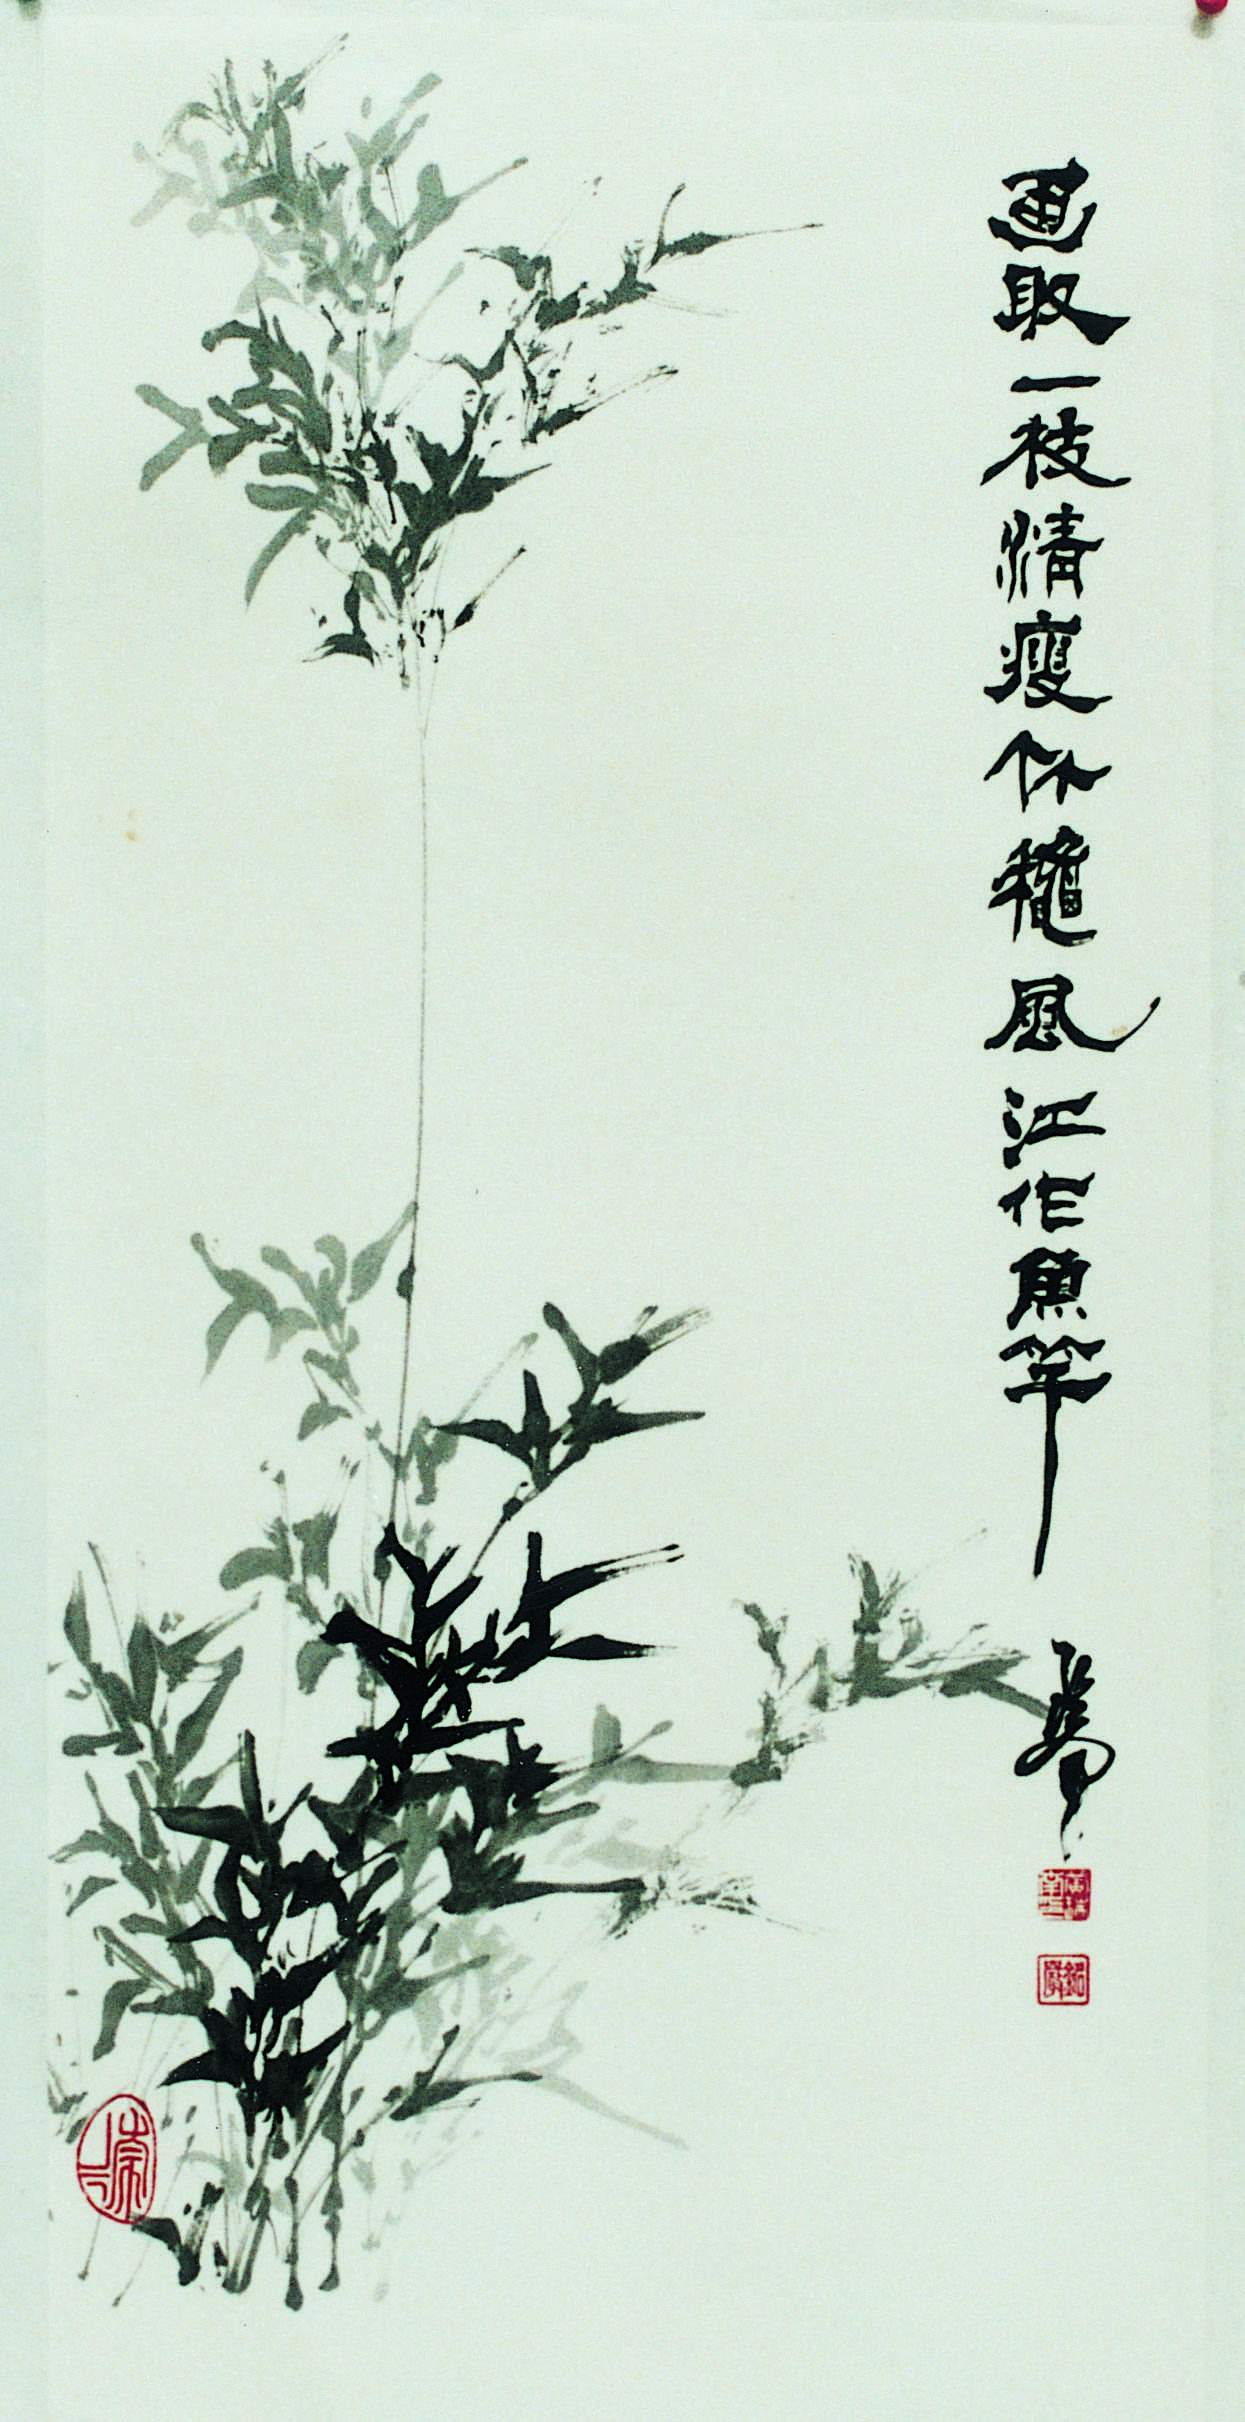 画取一枝清瘦竹龝风江作鱼竿